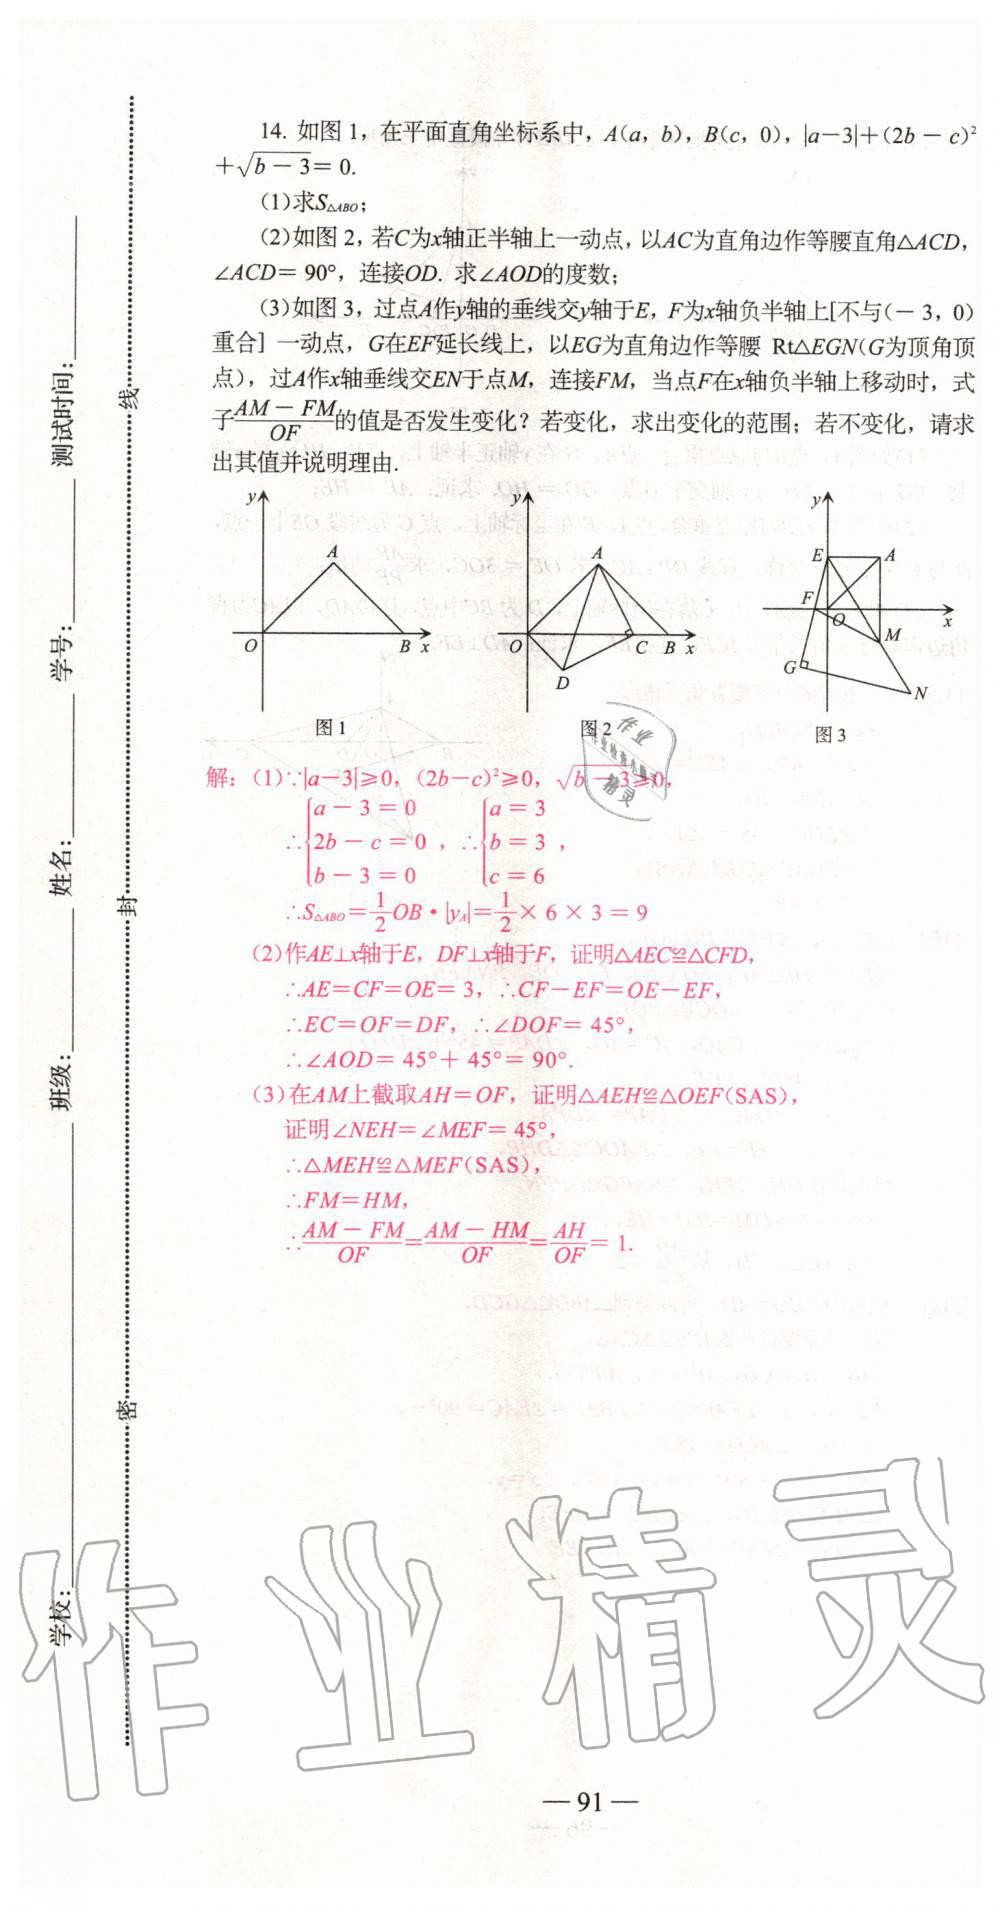 14. 如图1，在平面直角坐标系中，A(a，b)，B(c，0)，|a－3|＋(2b－c)²
＋√(b－3)＝0.
(1)求S△ABO；
(2)如图2，若C为x轴正半轴上一动点，以AC为直角边作等腰直角△ACD，
∠ACD＝90°，连接OD. 求∠AOD的度数；
(3)如图3，过点A作y轴的垂线交y轴于E，F为x轴负半轴上[不与(－3，0)
重合] 一动点，G在EF延长线上，以EG为直角边作等腰 Rt△EGN(G为顶角顶
点)，过A作x轴垂线交EN于点M，连接FM，当点F在x轴负半轴上移动时，式
子(AM－FM)/OF的值是否发生变化？若变化，求出变化的范围；若不变化，请求
出其值并说明理由.
y A O B x
图1
y A O C B x D
图2
y E A F O x M G N
图3
解：(1)∵|a－3|≥0，(2b－c)²≥0，√(b－3)≥0，
∴{a－3＝0 2b－c＝0 b－3＝0，∴{a＝3 b＝3 c＝6，
∴S△ABO＝1/2OB·|yA|＝1/2×6×3＝9
(2)作AE⊥x轴于E，DF⊥x轴于F，证明△AEC≌△CFD，
∴AE＝CF＝OE＝3，∴CF－EF＝OE－EF，
∴EC＝OF＝DF，∴∠DOF＝45°，
∴∠AOD＝45°＋45°＝90°.
(3)在AM上截取AH＝OF，证明△AEH≌△OEF(SAS)，
证明∠NEH＝∠MEF＝45°，
∴△MEH≌△MEF(SAS)，
∴FM＝HM，
∴(AM－FM)/OF＝(AM－HM)/OF＝AH/OF＝1.
— 91 —
学校： 班级： 姓名： 学号： 测试时间：
密 封 线
作业精灵
作业
精灵